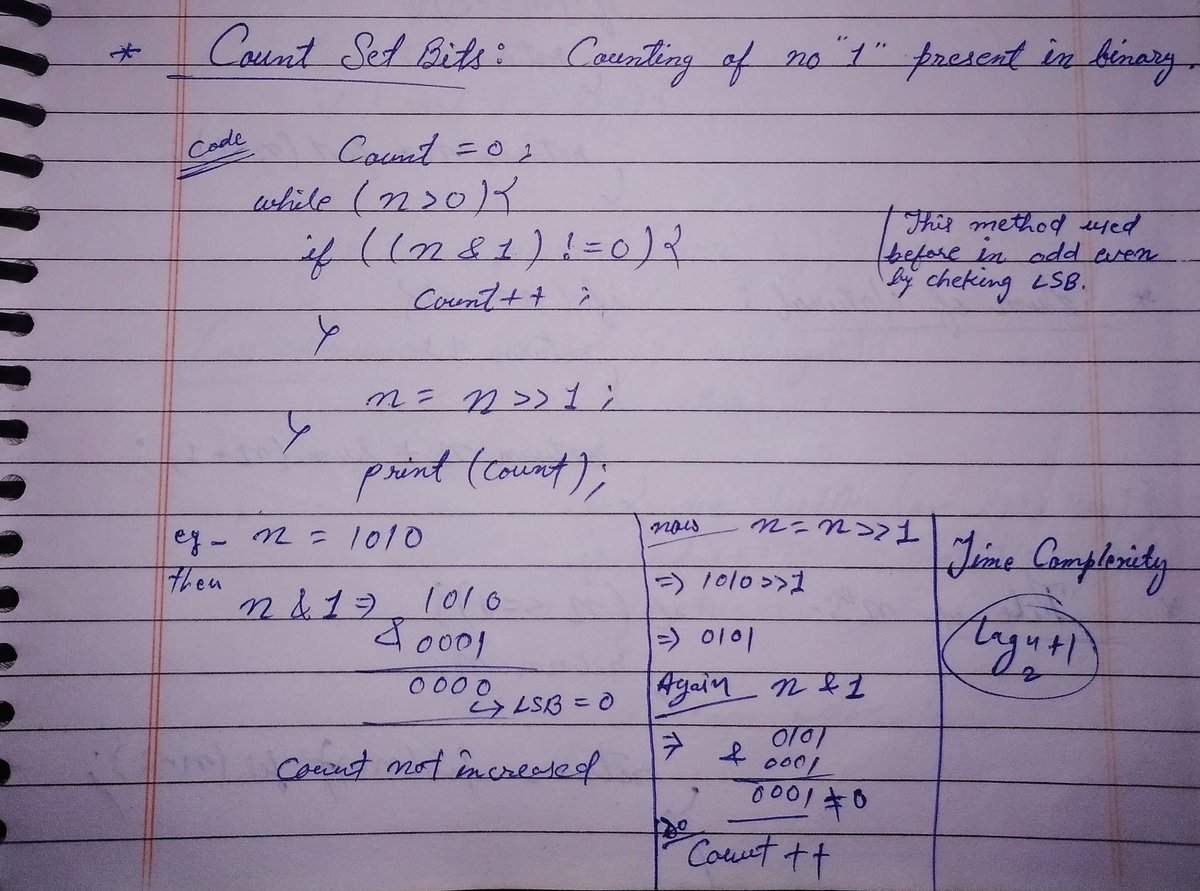 * Count Set Bits: Counting of no "1" present in binary.
Code
Count = 0;
while (n>0){
if ((n & 1) != 0){
Count++ ;
}
n = n >> 1 ;
}
print (Count);
This method used
before in odd even
by cheking LSB.
eg - n = 1010
then
n & 1 ⇒ 1010
& 0001
0000
↳ LSB = 0
Count not increased
now n = n >> 1
⇒ 1010 >> 1
⇒ 0101
Again n & 1
⇒ 0101
& 0001
0001 ≠ 0
So
Count ++
Time Complexity
Log₂n+1